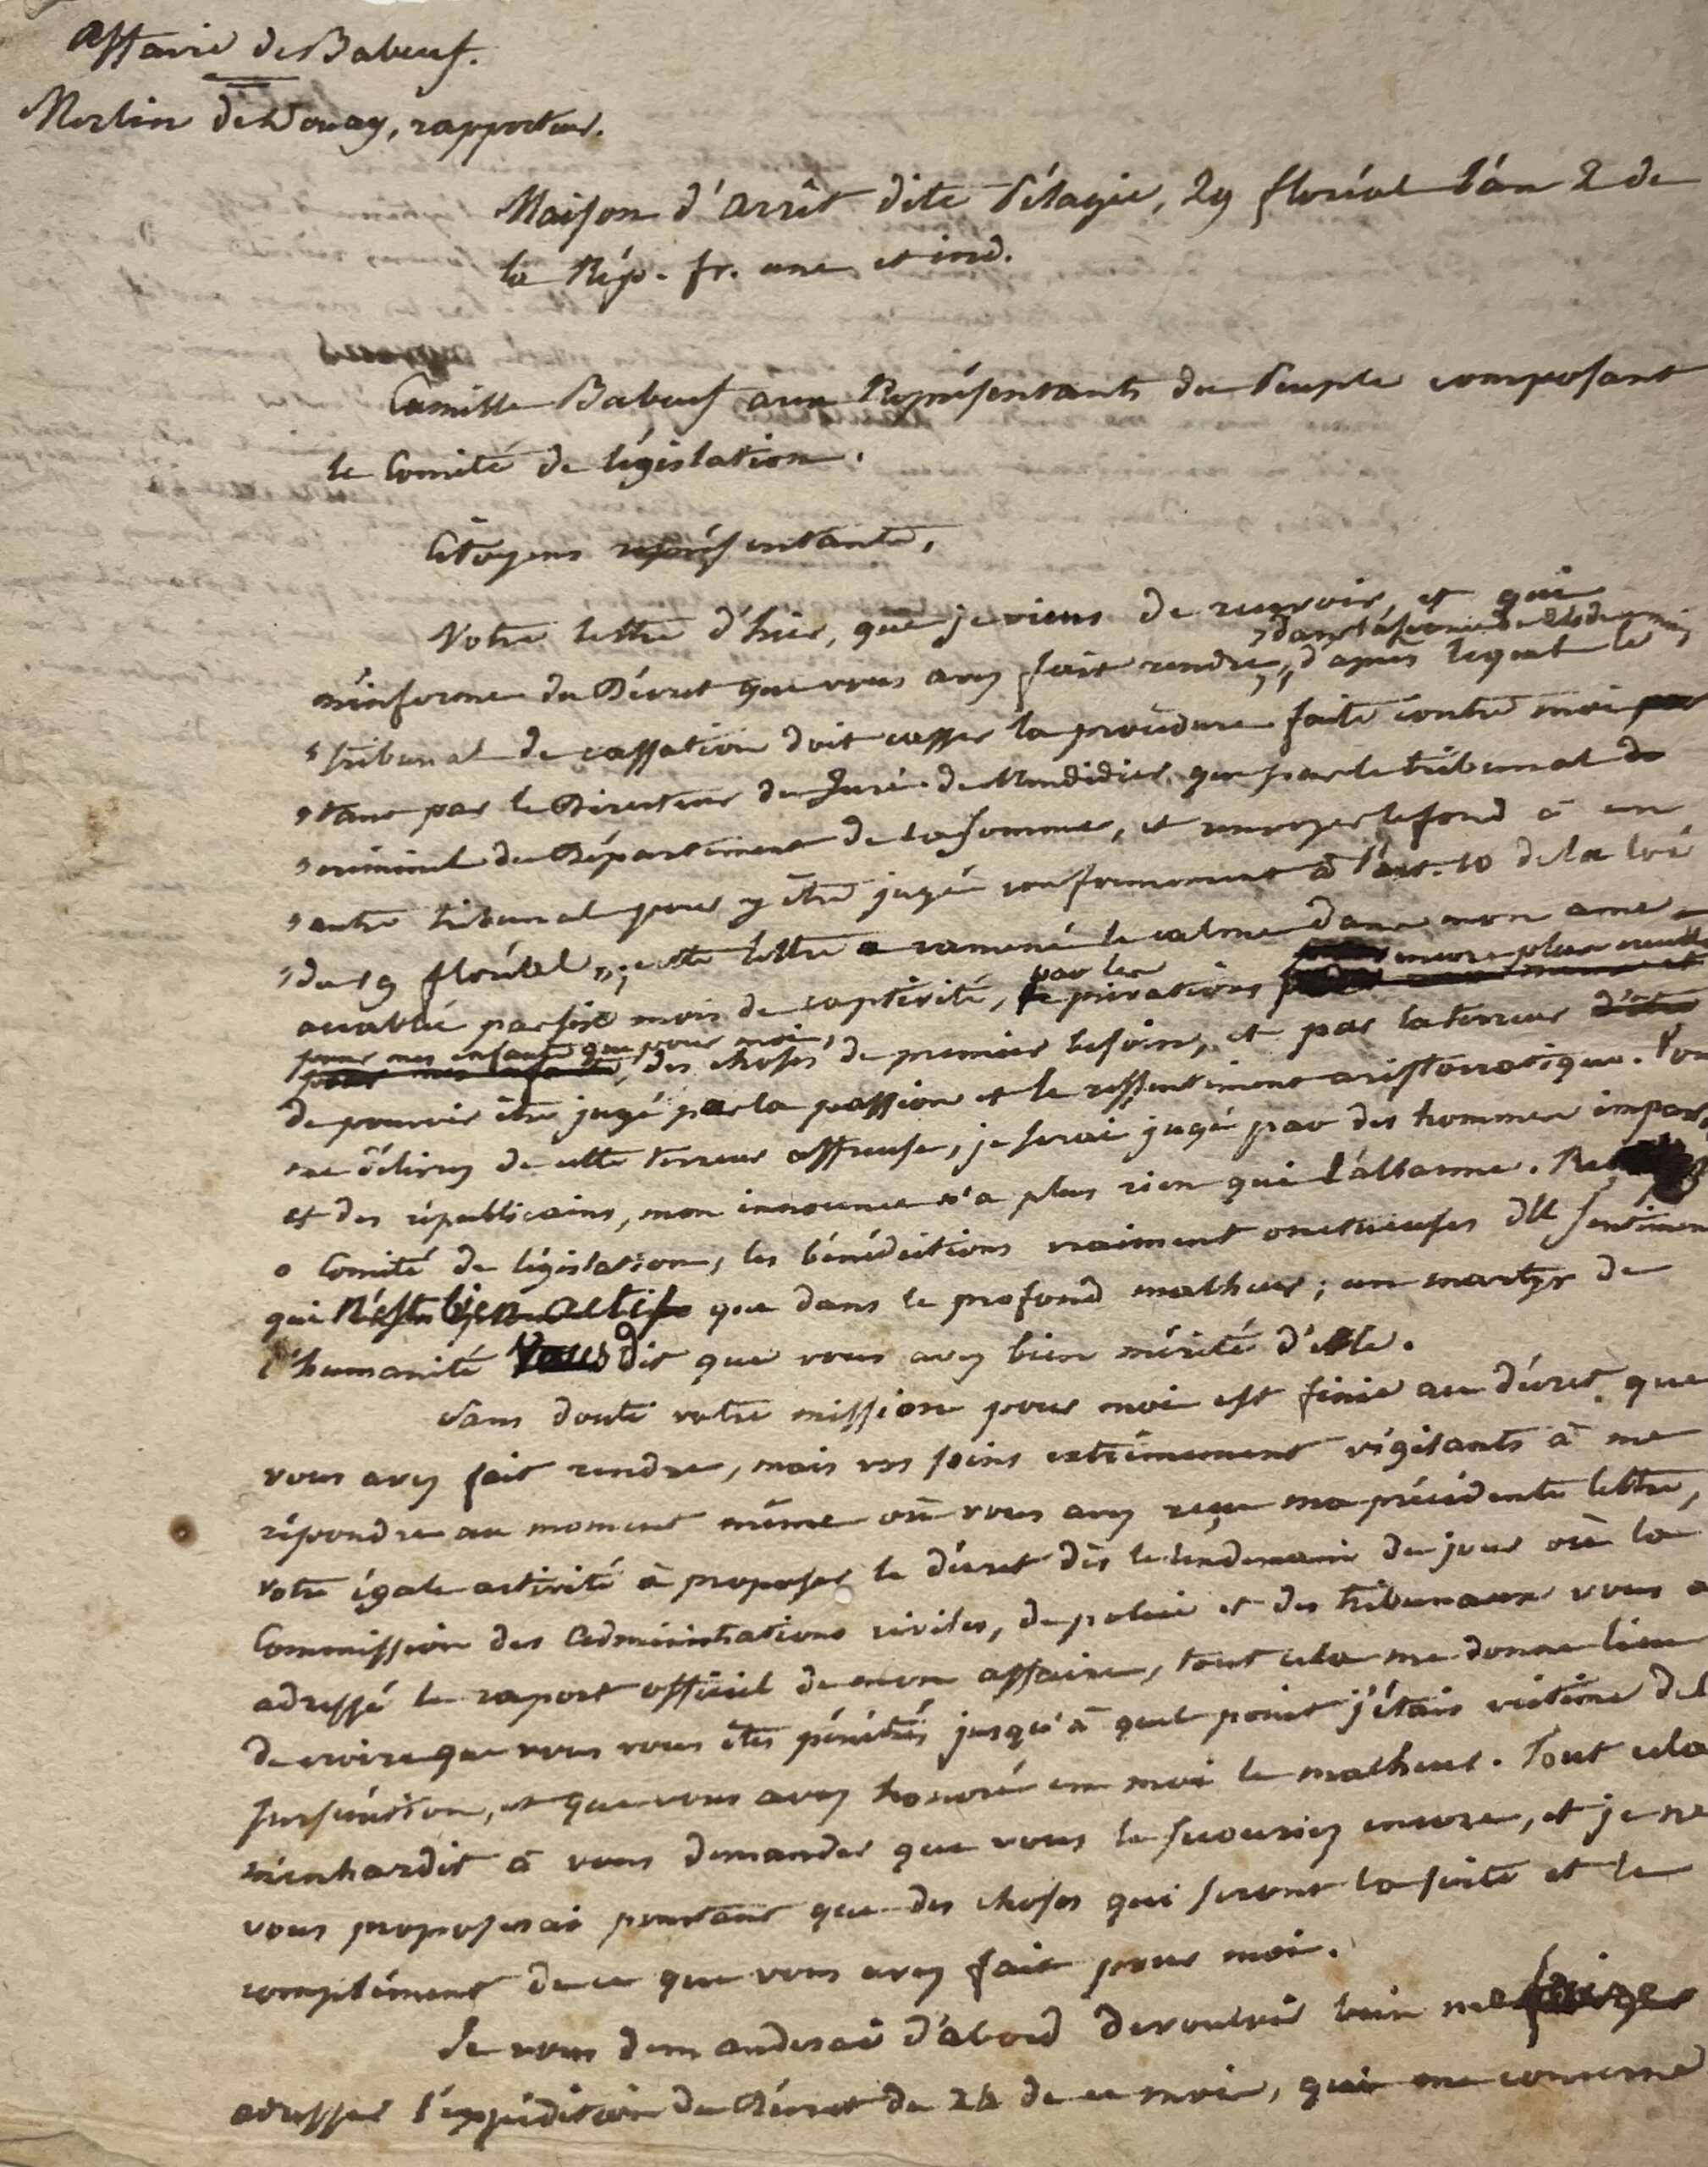 Affaire de Babeuf.
Merlin de Douay, rapporteur.
Maison d'arrêt dite Pélagie, 29 floréal l'an 2 de
la Rép. fr. une et ind.
Camille Babeuf aux Représentants du Peuple composant
le Comité de législation.
Citoyens représentants,
Votre lettre d'hier, que je viens de recevoir, et qui
dans la séance du 24 de ce mois,
m'informe du Décret que vous avez fait rendre, "d'après lequel le
"tribunal de cassation doit casser la procédure faite contre moi
"tant par le Directeur du Juré de Mondidier que par le tribunal
"criminel du Département de la Somme, et renvoyer le fond à un
"autre tribunal pour y être jugé conformément à l'art. 10 de la loi
"du 19 floréal"; cette lettre a ramené le calme dans mon ame
par les encore plus cruelles
accablée par six mois de captivité, privations
pour mes enfants que pour moi,
des choses de premier besoin, et par la terreur
de pouvoir être jugé par la passion et le ressentiment aristocratique. Vous
me délivrez de cette terreur affreuse, je serai jugé par des hommes impart
et des républicains, mon innocence n'a plus rien qui l'allarme.
o Comité de législation, les bénédictions vraiment onctueuses du sentiment
qui n'est bien actif que dans le profond malheur; un martyr de
l'humanité vous dit que vous avez bien mérité d'elle.
Sans doute votre mission pour moi est finie au décret que
vous avez fait rendre, mais vos soins extrêmement vigilants à me
répondre au moment même où vous avez reçu ma précédente lettre,
votre égale activité à proposer le décret dès le lendemain du jour où la
Commission des administrations civiles, de police et des tribunaux vous a
adressé le raport officiel de mon affaire, tout cela me donne lieu
de croire que vous vous êtes pénétrés jusqu'à quel point j'étais victime de l
persécution, et que vous avez honoré en moi le malheur. Tout cela
m'enhardit à vous demander que vous le secouriez encore, et je ne
vous proposerai pourtant que des choses qui seront la suite et le
complément de ce que vous avez fait pour moi.
Je vous demanderai d'abord de vouloir bien me faire
adresser l'expédition du Décret du 24 de ce mois, qui me concerne